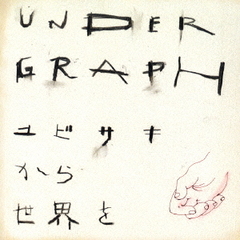 UNDER
GRAPH
ユビサキ
から
世界を